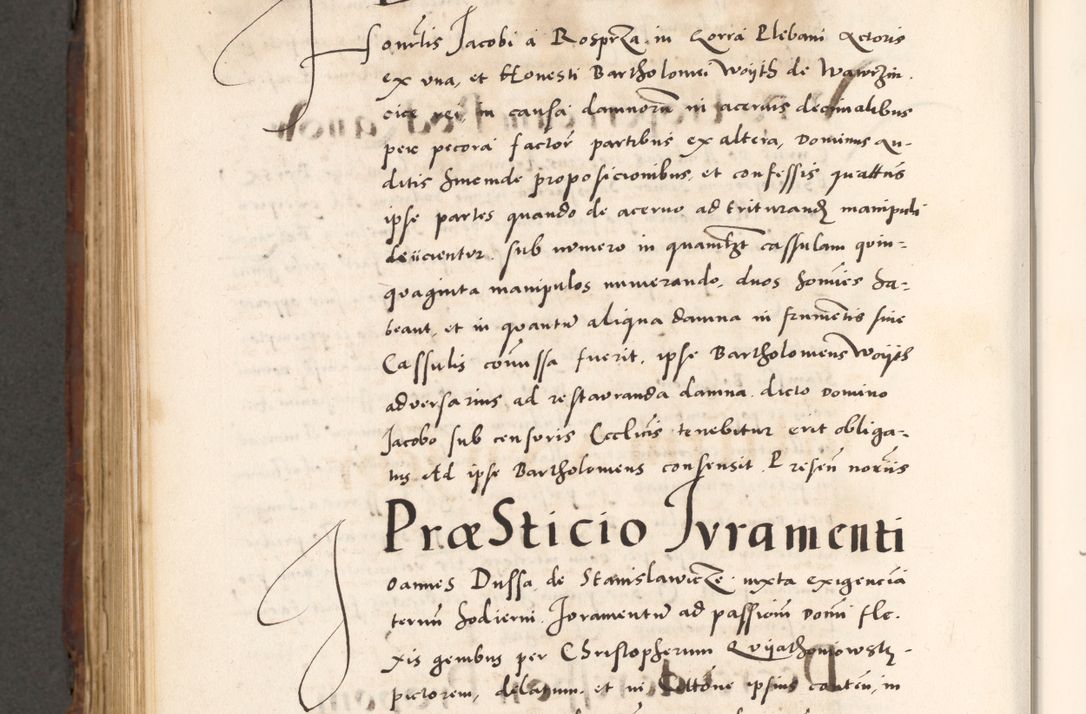 Honestis Jacobi a Rosprza in Gorra Plebani Actoris
ex vna, et Honesti Bartholomei Woyth de Wawrzin.
cice rei in causa damnorum in aceruis decimalibus
per pecora factor partibus ex altera, Dominus au-
ditis hincinde proposicionibus et confessis quatenus
ipse partes quando de aceruo ad triturand manipuli
deiicientur. sub numero in quamlibet cassulam quin-
quaginta manipulos numerando, duos homines ha-
beant, et in quantum aliqua damna in frumentis siue
Cassulis commissa fuerit, ipse Bartholomeus Woyth
aduersarius ad restauranda damna dicto Domino
Jacobo sub censuris Ecclicis tenebitur erit obliga-
tus Ad ipse Bartholomeus consensit Presen noriis
PræSticio Jvramenti
Joannes Dussa de Stanislawicze iuxta exigencia
terum hodierni Joramentum ad passionem Domini fle-
xis genibus per Christopherum Quijathoniowsky
pictorem, delatum et in ipsius conten, in